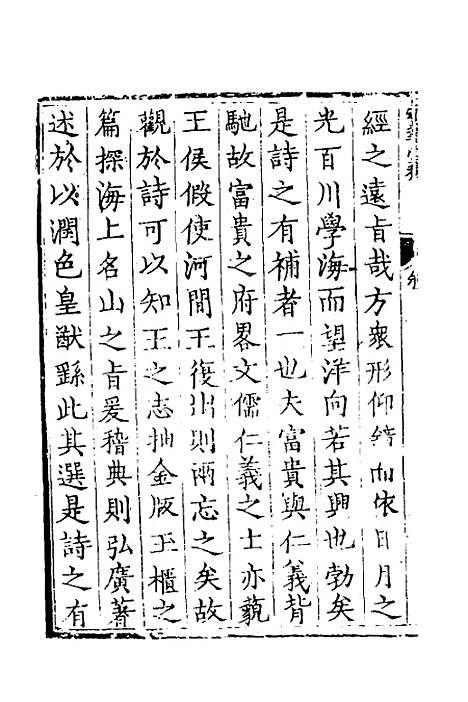 經之遠旨哉方衆形仰鏡而依日月之
光百川學海而望洋向若其興也勃矣
是詩之有補者一也夫富貴與仁義背
馳故富貴之府畧文儒仁義之士亦藐
王侯假使河間王復出則兩忘之矣故
觀於詩可以知王之志抽金版玉櫃之
篇探海上名山之旨爰稽典則弘廣著
述於以潤色皇猷繇此其選是詩之有